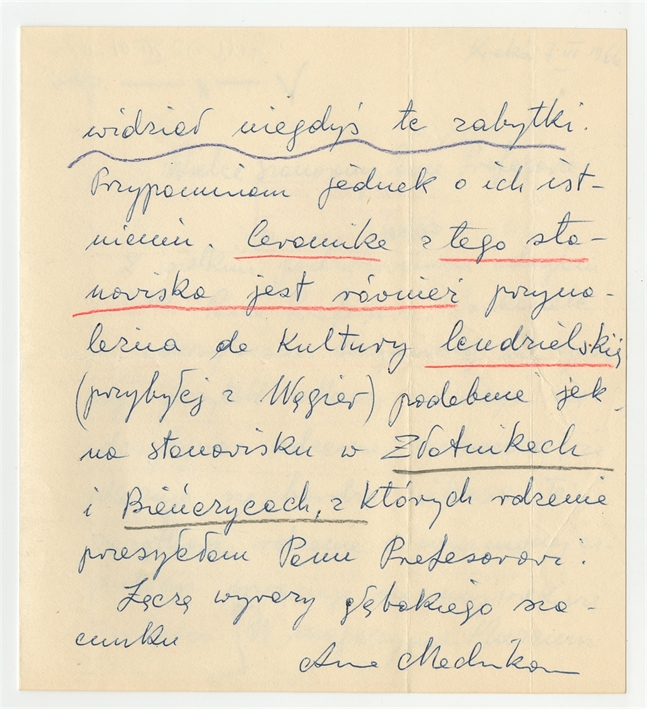 widzieć niegdyś te zabytki.
Przypominam jednak o ich ist-
nieniu. Ceramika z tego sta-
nowiska jest również przyna-
leżna do Kultury lendzielskiej
(przybyłej z Węgier) podobnie jak
na stanowisku w Złotnikach
i Bieńczycach, z których rdzenie
przesyłam Panu Profesorowi.
Łączę wyrazy głębokiego sza-
cunku